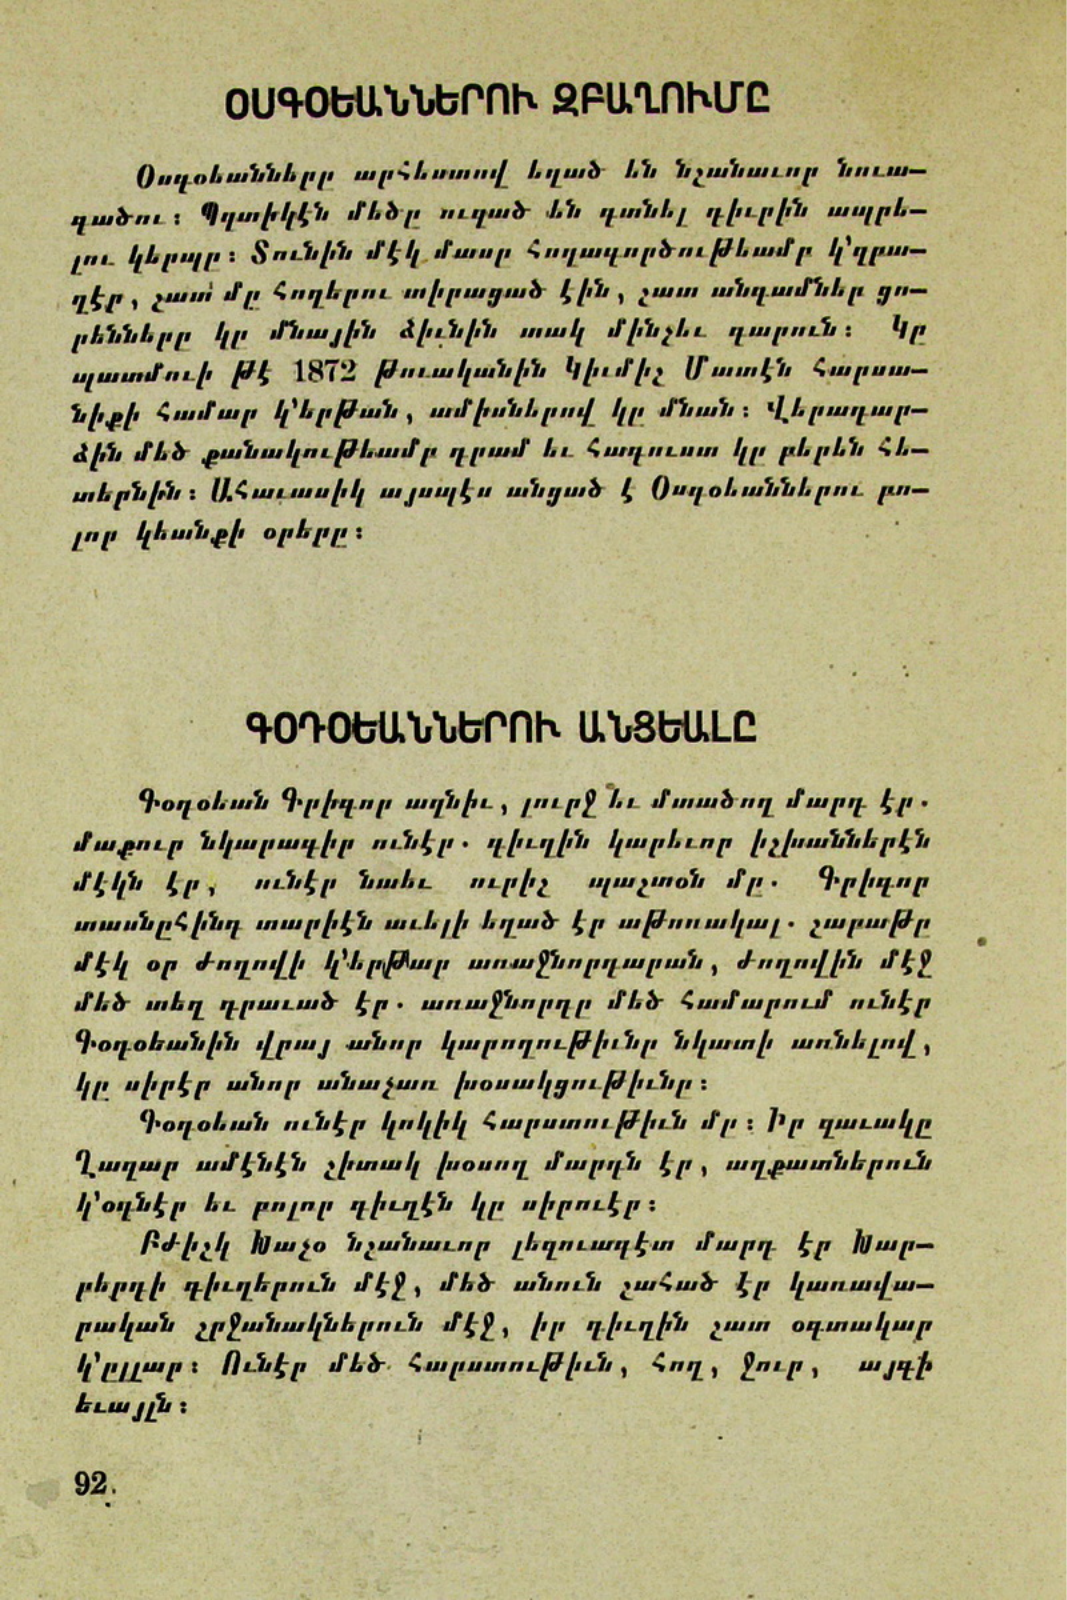 ՕՍԳՕԵԱՆՆԵՐՈՒ ԶԲԱՂՈՒՄԸ
Օսգօեանները արհեստով եղած են նշանաւոր նուա—
գածու։ Պզտիկէն մեծը ուզած են գտնել դիւրին ապրե—
լու կերպը։ Տունին մէկ մասը հողագործութեամբ կ՚զբա—
ղէր, շատ մը հողերու տիրացած էին, շատ անգամներ ցո—
րենները կը մնային ձիւնին տակ մինչեւ գարուն։ Կը
պատմուի թէ 1872 թուականին Կիւմիշ Մատէն հարսա—
նիքի համար կ՚երթան, ամիսներով կը մնան։ Վերադար—
ձին մեծ քանակութեամբ դրամ եւ հագուստ կը բերեն հե—
տերնին։ Ահաւասիկ այսպէս անցած է Օսգօեաններու բո—
լոր կեանքի օրերը։
ԳՕԴՕԵԱՆՆԵՐՈՒ ԱՆՑԵԱԼԸ
Գօդօեան Գրիգոր ազնիւ, լուրջ եւ մտածող մարդ էր.
մաքուր նկարագիր ունէր. գիւղին կարեւոր իշխաններէն
մէկն էր, ունէր նաեւ ուրիշ պաշտօն մը. Գրիգոր
տասնըհինգ տարիէն աւելի եղած էր աթոռակալ. շաբաթը
մէկ օր ժողովի կ՚երթար առաջնորդարան, ժողովին մէջ
մեծ տեղ գրաւած էր. առաջնորդը մեծ համարում ունէր
Գօդօեանին վրայ անոր կարողութիւնը նկատի առնելով,
կը սիրէր անոր անաչառ խօսակցութիւնը։
Գօդօեան ունէր կոկիկ հարստութիւն մը։ Իր զաւակը
Ղազար ամէնէն շիտակ խօսող մարդն էր, աղքատներուն
կ՚օգնէր եւ բոլոր գիւղէն կը սիրուէր։
Բժիշկ Խաչօ նշանաւոր լեզուագէտ մարդ էր Խար—
բերդի գիւղերուն մէջ, մեծ անուն շահած էր կառավա—
րական շրջանակներուն մէջ, իր գիւղին շատ օգտակար
կ՚ըլլար։ Ունէր մեծ հարստութիւն, հող, ջուր, այգի
եւայլն։
92.